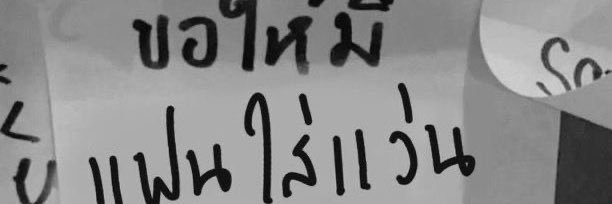 ขอให้มี
แฟนใส่แว่น